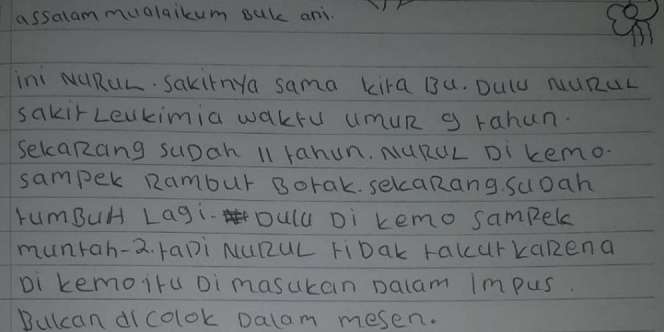 assalammualaikum Buk ani.
ini NURUL. sakitnya sama kita BU. DULU NURUL
sakit Leukimia waktu umur 9 tahun.
sekarang sudah 11 tahun. NURUL Di kemo.
sampek Rambut Botak. sekarang. sudah
tumBUH Lagi. DULU Di kemo sampek
muntah-2. tapi NURUL tidak takut karena
Di kemo itu Di masukan Dalam impus.
Bukan di colok Dalam mesen.